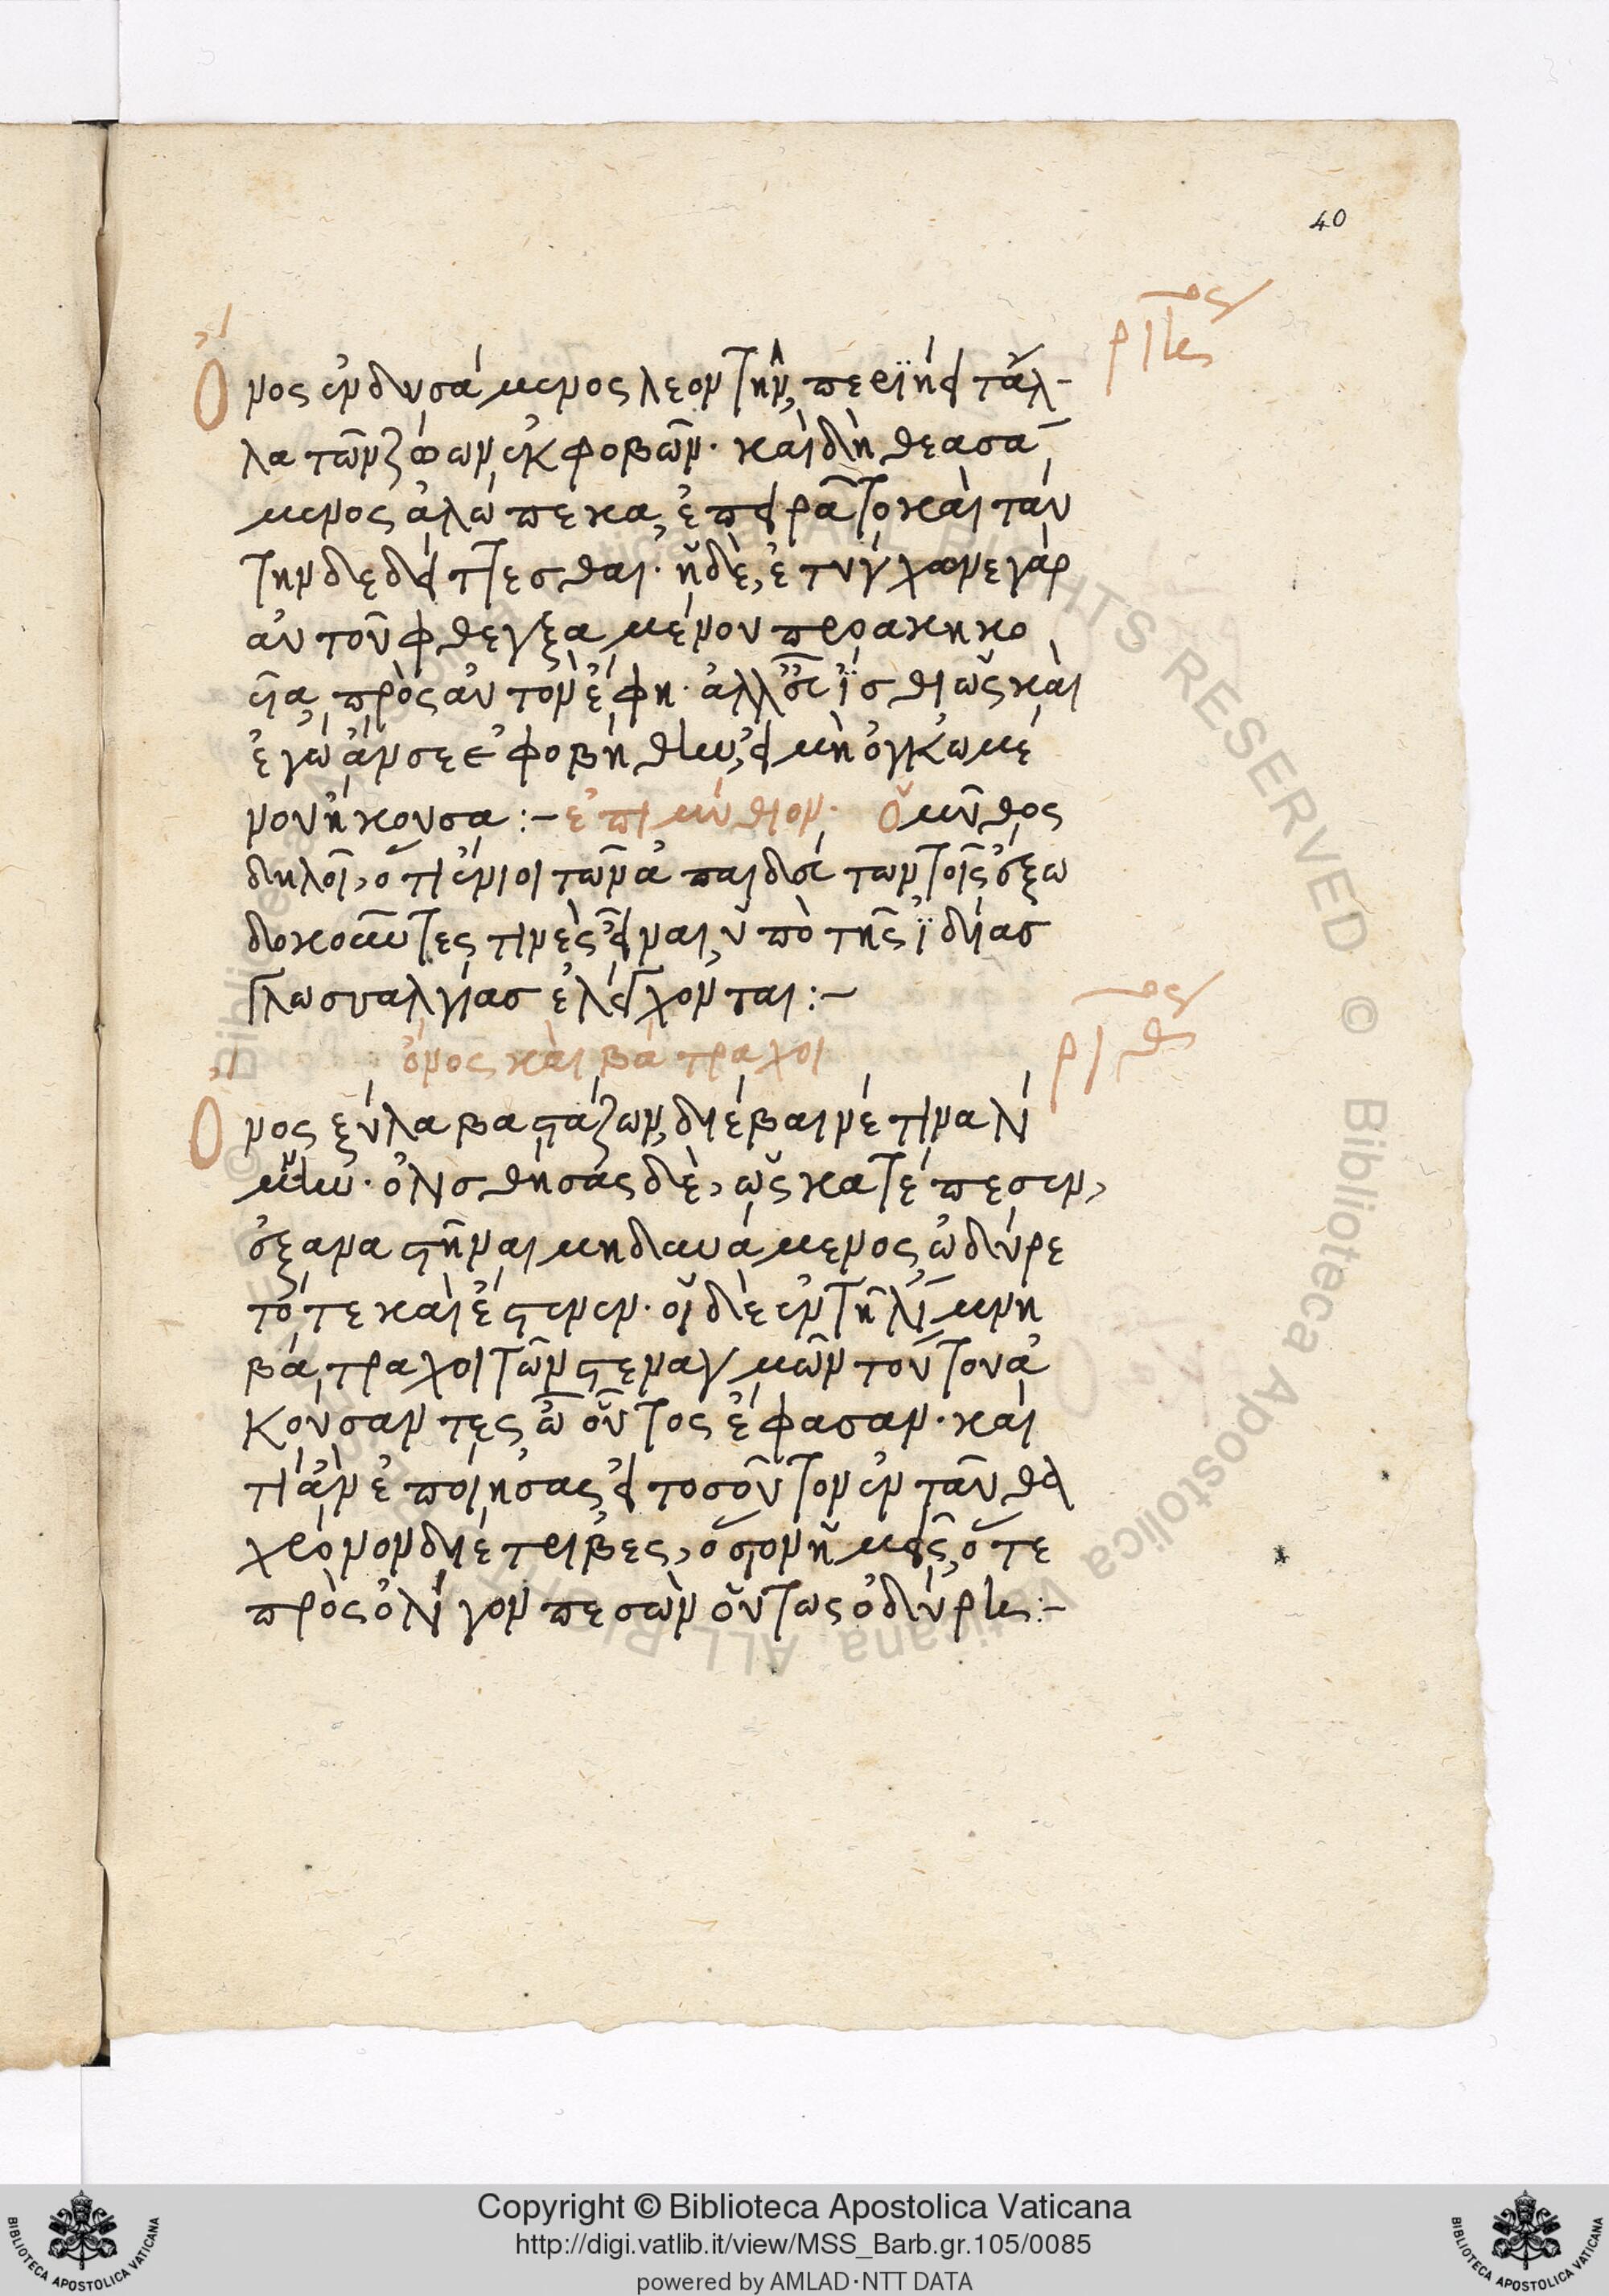 40
ριηος
Ὄνος ἐνδυσάμενος λεοντῆν, περιῄει τἄλ-
λα τῶν ζώων ἐκφοβῶν· καὶ δὴ θεασά
μενος ἀλώπεκα, ἐπειρᾶτο καὶ ταύ
την δεδείττεσθαι· ἡ δὲ, ἐτύγχανε γὰρ
αὐτοῦ φθεγξαμένου προακηκο
υῖα, πρὸς αὐτὸν ἔφη· ἀλλ' εὖ ἴσθι ὡς καὶ
ἐγὼ ἄν σε ἐφοβήθην, εἰ μὴ ὀγκωμέ
νου ἤκουσα :- ἐπιμύθιον· ὁ μῦθος
δηλοῖ, ὅτι ἔνιοι τῶν ἀπαιδεύτων τοῖς ἔξω
δοκοῦντες τινὲς εἶναι, ὑπὸ τῆς ἰδίας
γλωσσαλγίας ἐλέγχονται :-
ὄνος καὶ βάτραχοι
ριθος
Ὄνος ξύλα βαστάζων, διέβαινέ τινα λί
μνην· ὀλισθήσας δὲ, ὡς κατέπεσεν,
ἐξαναστῆναι μὴ δυνάμενος ὠδύρε
τό τε καὶ ἔστενεν· οἱ δὲ ἐν τῇ λίμνῃ
βάτραχοι τῶν στεναγμῶν τούτου ἀ
κούσαντες, ὦ οὗτος ἔφασαν· καὶ
τί ἂν ἐποίησας, εἰ τοσοῦτον ἐνταῦθα
χρόνον διέτριβες, ὅσον ἡμεῖς, ὅτε
πρὸς ὀλίγον πεσὼν οὕτως ὀδύρῃ :-
Copyright © Biblioteca Apostolica Vaticana
http://digi.vatlib.it/view/MSS_Barb.gr.105/0085
powered by AMLAD·NTT DATA